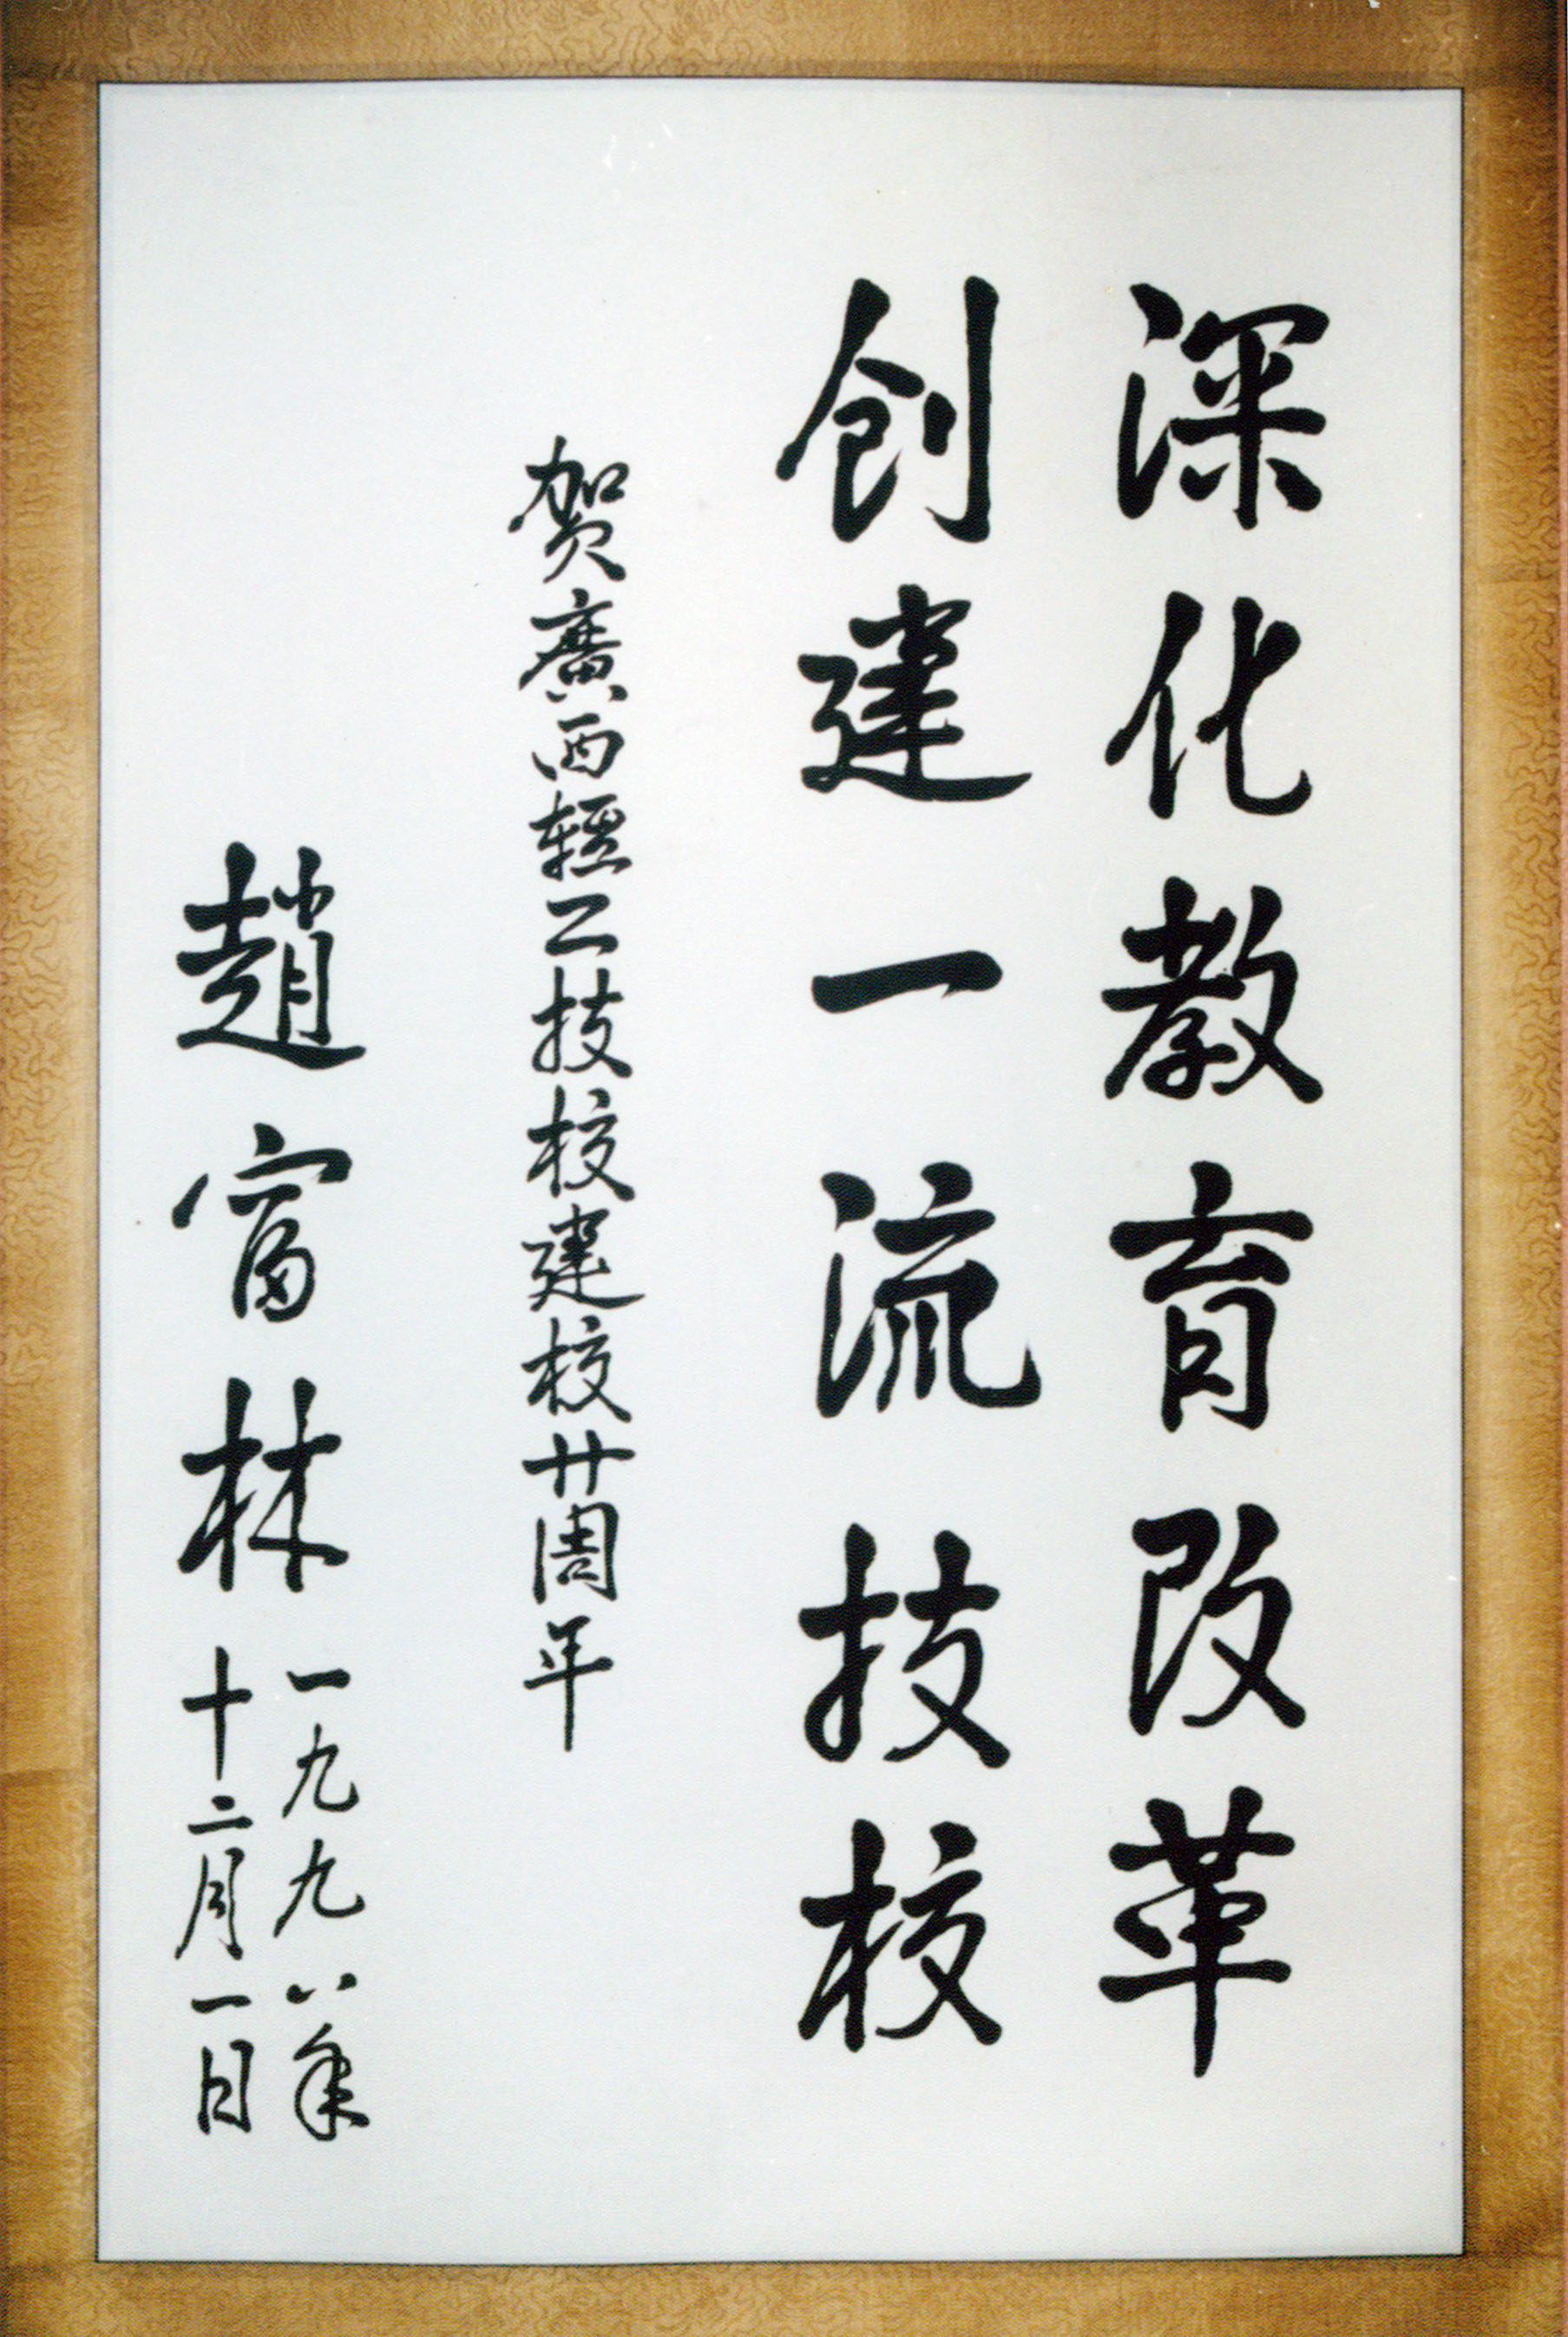 深化教育改革
创建一流技校
贺廣西輕工技校建校廿周年
趙富林
一九九八年
十二月一日